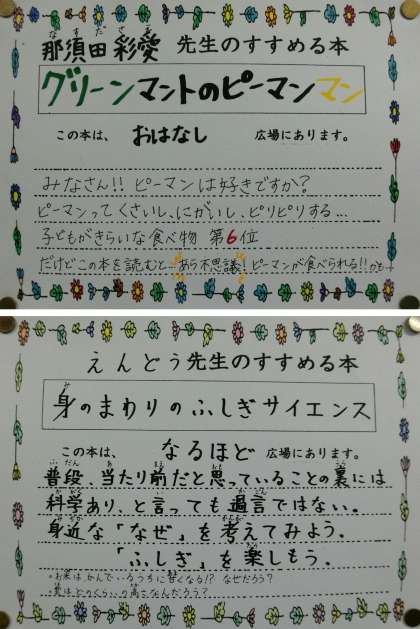 那須田 彩愛 先生のすすめる本
グリーンマントのピーマンマン
この本は、 おはなし 広場にあります。
みなさん!! ピーマンは好きですか?
ピーマンってくさいし、にがいし、ピリピリする…
子どもがきらいな食べ物 第6位
だけどこの本を読むと…あら不思議!ピーマンが食べられる!!かも…
えんどう先生のすすめる本
身のまわりのふしぎサイエンス
この本は、 なるほど 広場にあります。
普段、当たり前だと思っていることの裏には
科学あり、と言っても過言ではない。
身近な「なぜ」を考えてみよう。
「ふしぎ」を楽しもう。
・お茶はかんでいるうちに甘くなる!? なぜだろう?
の高さなんだろう?